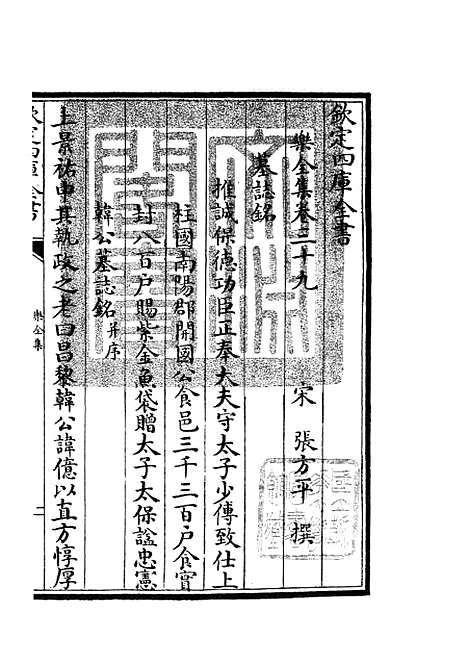 欽定四庫全書
樂全集卷三十九
宋 張方平 撰
墓誌銘
推誠保德功臣正奉大夫守太子少傅致仕上
柱國南陽郡開國公食邑三千三百户食實
封八百户賜紫金魚袋贈太子太保謚忠憲
韓公墓誌銘并序
上景祐中其執政之老曰昌黎韓公諱億以直方惇厚
欽定四庫全書
樂全集